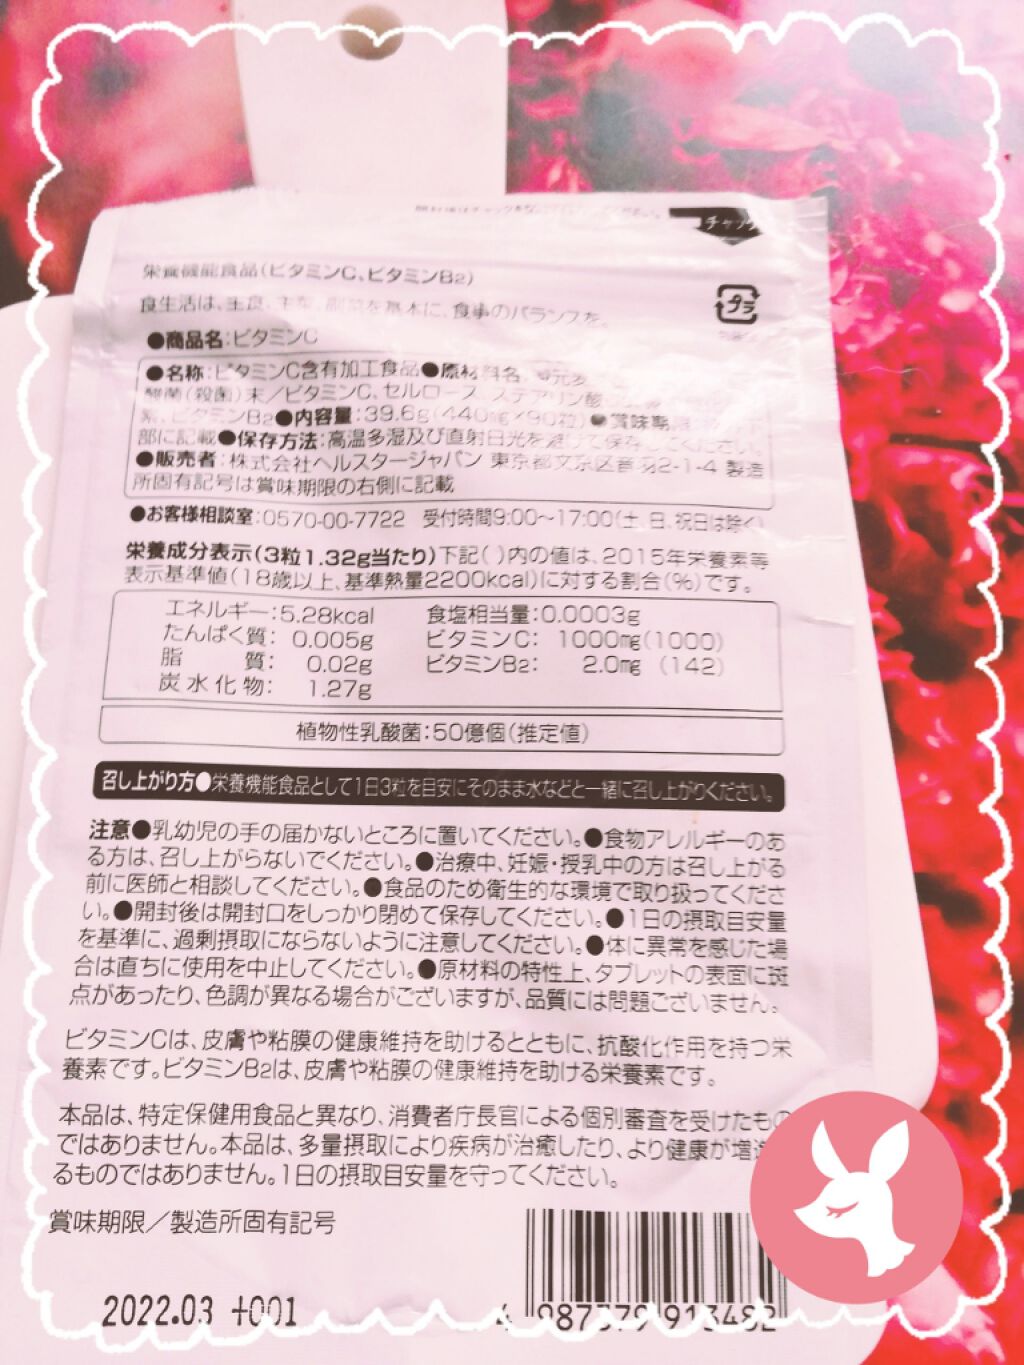 チャック
栄養機能食品(ビタミンC、ビタミンB2)
食生活は、主食、主菜、副菜を基本に、食事のバランスを。
プラ
●商品名:ビタミンC
●名称:ビタミンC含有加工食品●原材料名
酸菌(殺菌)末/ビタミンC、セルロース、ステアリン酸
素、ビタミンB2●内容量:39.6g(440mg×90粒)●賞味期限
部に記載●保存方法:高温多湿及び直射日光を避けて保存してください。
●販売者:株式会社ヘルスタージャパン 東京都文京区音羽2-1-4 製造
所固有記号は賞味期限の右側に記載
●お客様相談室:0570-00-7722 受付時間9:00～17:00(土、日、祝日は除く)
栄養成分表示(3粒1.32g当たり)下記( )内の値は、2015年栄養素等
表示基準値(18歳以上、基準熱量2200kcal)に対する割合(%)です。
エネルギー:5.28kcal 食塩相当量:0.0003g
たんぱく質: 0.005g ビタミンC: 1000mg(1000)
脂 質: 0.02g ビタミンB2: 2.0mg (142)
炭水化物: 1.27g
植物性乳酸菌:50億個(推定値)
召し上がり方●栄養機能食品として1日3粒を目安にそのまま水などと一緒に召し上がりください。
注意●乳幼児の手の届かないところに置いてください。●食物アレルギーのあ
る方は、召し上がらないでください。●治療中、妊娠・授乳中の方は召し上がる
前に医師と相談してください。●食品のため衛生的な環境で取り扱ってくださ
い。●開封後は開封口をしっかり閉めて保存してください。●1日の摂取目安量
を基準に、過剰摂取にならないように注意してください。●体に異常を感じた場
合は直ちに使用を中止してください。●原材料の特性上、タブレットの表面に斑
点があったり、色調が異なる場合がございますが、品質には問題ございません。
ビタミンCは、皮膚や粘膜の健康維持を助けるとともに、抗酸化作用を持つ栄
養素です。ビタミンB2は、皮膚や粘膜の健康維持を助ける栄養素です。
本品は、特定保健用食品と異なり、消費者庁長官による個別審査を受けたもの
ではありません。本品は、多量摂取により疾病が治癒したり、より健康が増進
るものではありません。1日の摂取目安量を守ってください。
賞味期限/製造所固有記号
2022.03 +001
4 987379 913482